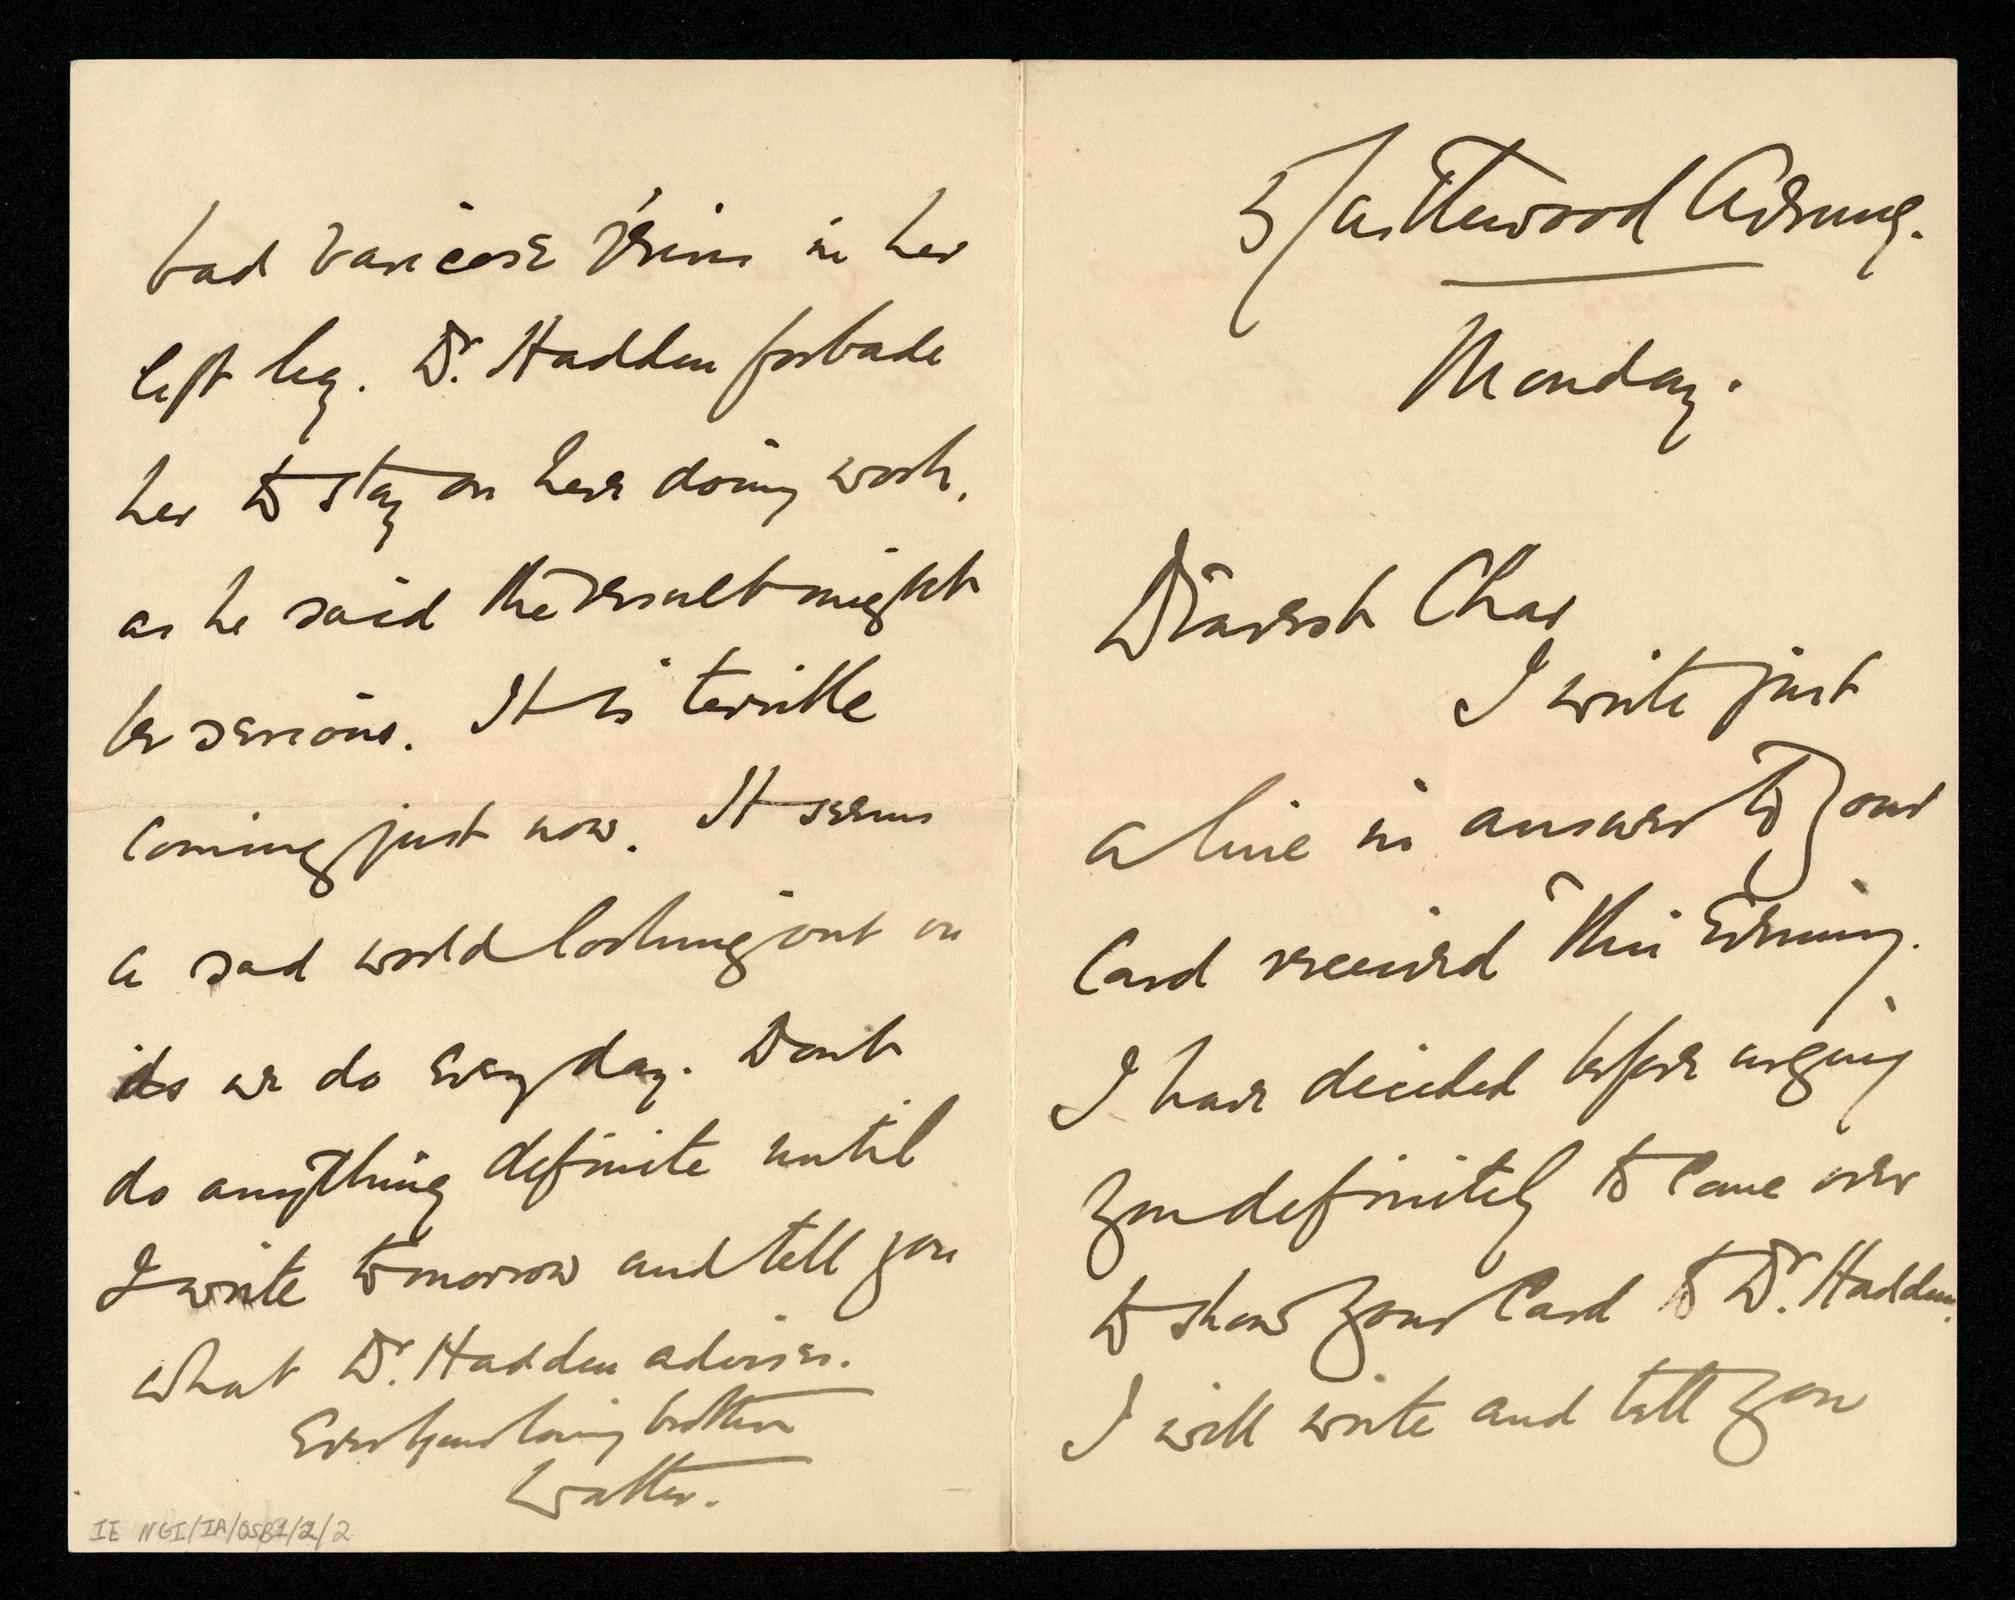 5 Castlewood Avenue.
Monday.
Dearest Chas
I write just
a line in answer to your
Card received this Evening.
I have decided before urging
you definitely to come over
to show your Card to Dr. Hadden.
I will write and tell you
bad varicose veins in her
left leg. Dr. Hadden forbade
her to stay on here doing work,
as he said the result might
be serious. It is terrible
coming just now. It seems
a sad world looking out on
we do every day. Dont
do anything definite until
I write tomorrow and tell you
what Dr. Hadden advises.
Ever your loving brother
Walter.
IE NGI/IA/OSB1/2/2